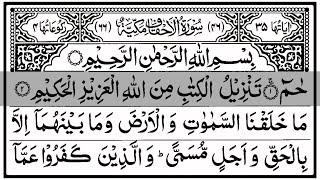 اٰیَاتُهَا ۳۵ (۴۶) سُوْرَةُ الْاَحْقَافِ مَكِّيَّةٌ (۶۶) رُكُوْعَاتُهَا ۴
بِسْمِ اللّٰهِ الرَّحْمٰنِ الرَّحِيْمِ
حٰمٓ ۚ﴿۱﴾ تَنْزِيْلُ الْكِتٰبِ مِنَ اللّٰهِ الْعَزِيْزِ الْحَكِيْمِ ﴿۲﴾
مَا خَلَقْنَا السَّمٰوٰتِ وَ الْاَرْضَ وَ مَا بَيْنَهُمَاۤ اِلَّا
بِالْحَقِّ وَ اَجَلٍ مُّسَمًّى ؕ وَ الَّذِيْنَ كَفَرُوْا عَمَّاۤ